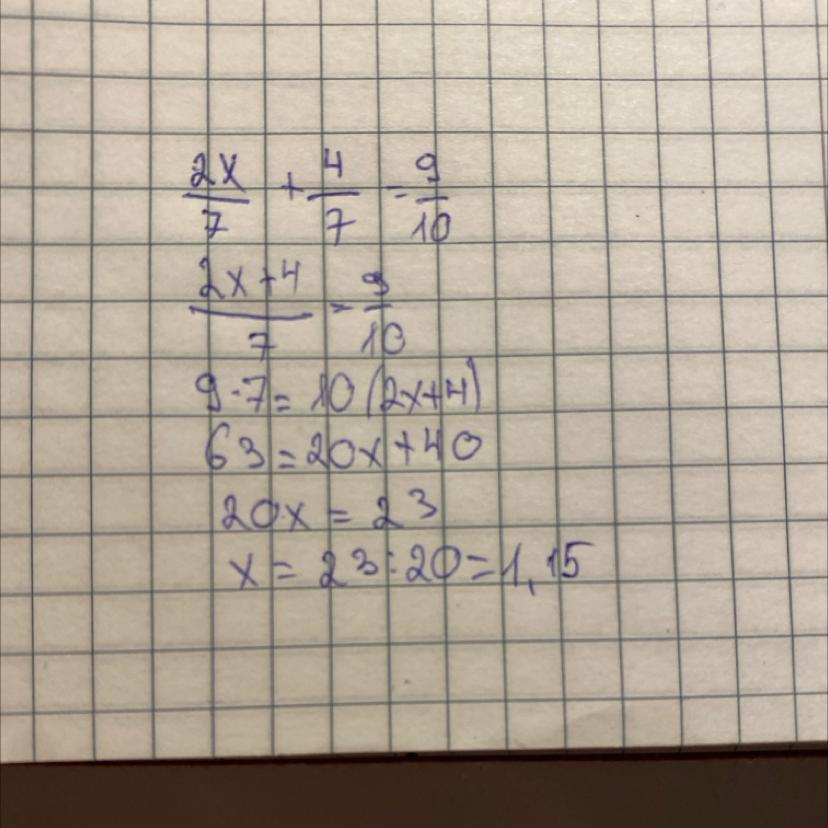 2x/7 + 4/7 = 9/10
(2x+4)/7 = 9/10
9·7 = 10(2x+4)
63 = 20x+40
20x = 23
x = 23:20 = 1,15